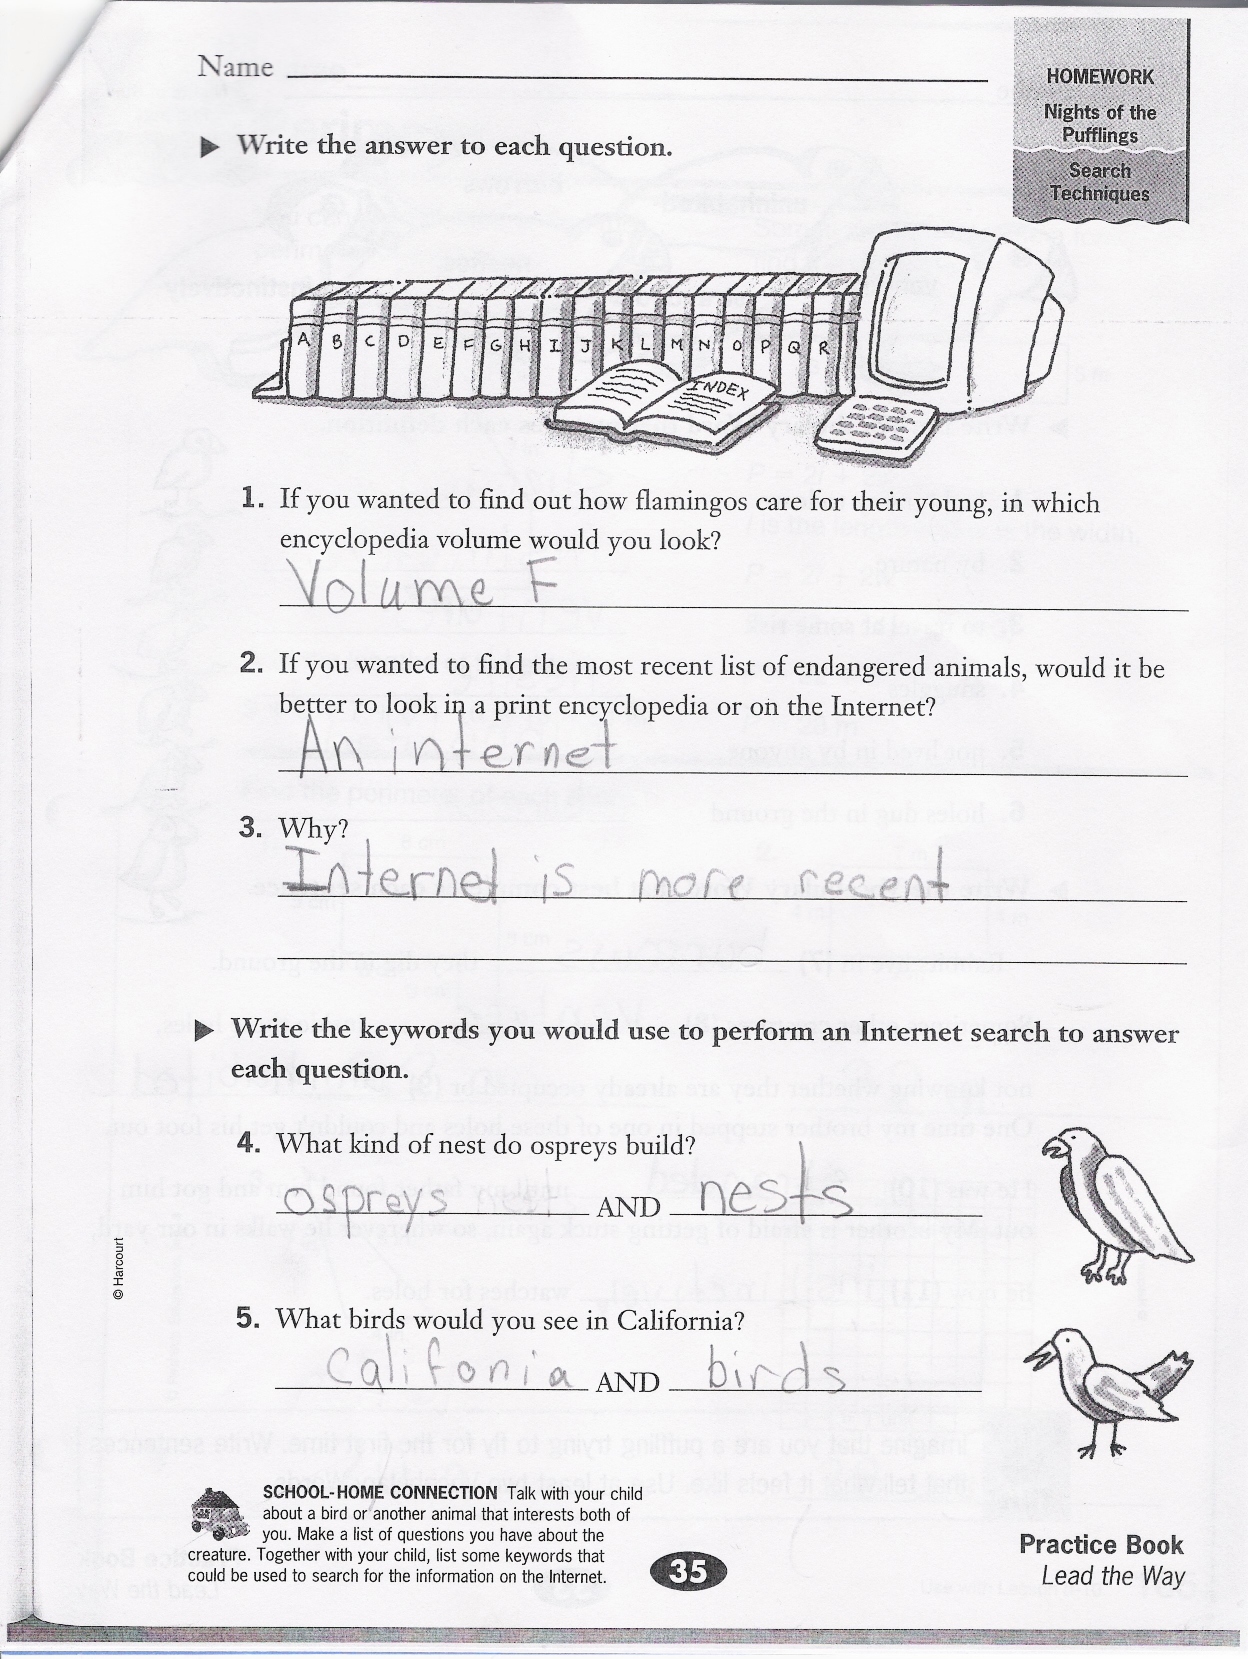 Name
HOMEWORK
Nights of the
Pufflings
Search
Techniques
Write the answer to each question.
A B C D E F G H I J K L M N O P Q R
INDEX
1. If you wanted to find out how flamingos care for their young, in which
encyclopedia volume would you look?
Volume F
2. If you wanted to find the most recent list of endangered animals, would it be
better to look in a print encyclopedia or on the Internet?
An internet
3. Why?
Internet is more recent
Write the keywords you would use to perform an Internet search to answer
each question.
4. What kind of nest do ospreys build?
ospreys AND nests
5. What birds would you see in California?
Califonia AND birds
© Harcourt
SCHOOL-HOME CONNECTION Talk with your child
about a bird or another animal that interests both of
you. Make a list of questions you have about the
creature. Together with your child, list some keywords that
could be used to search for the information on the Internet.
35
Practice Book
Lead the Way